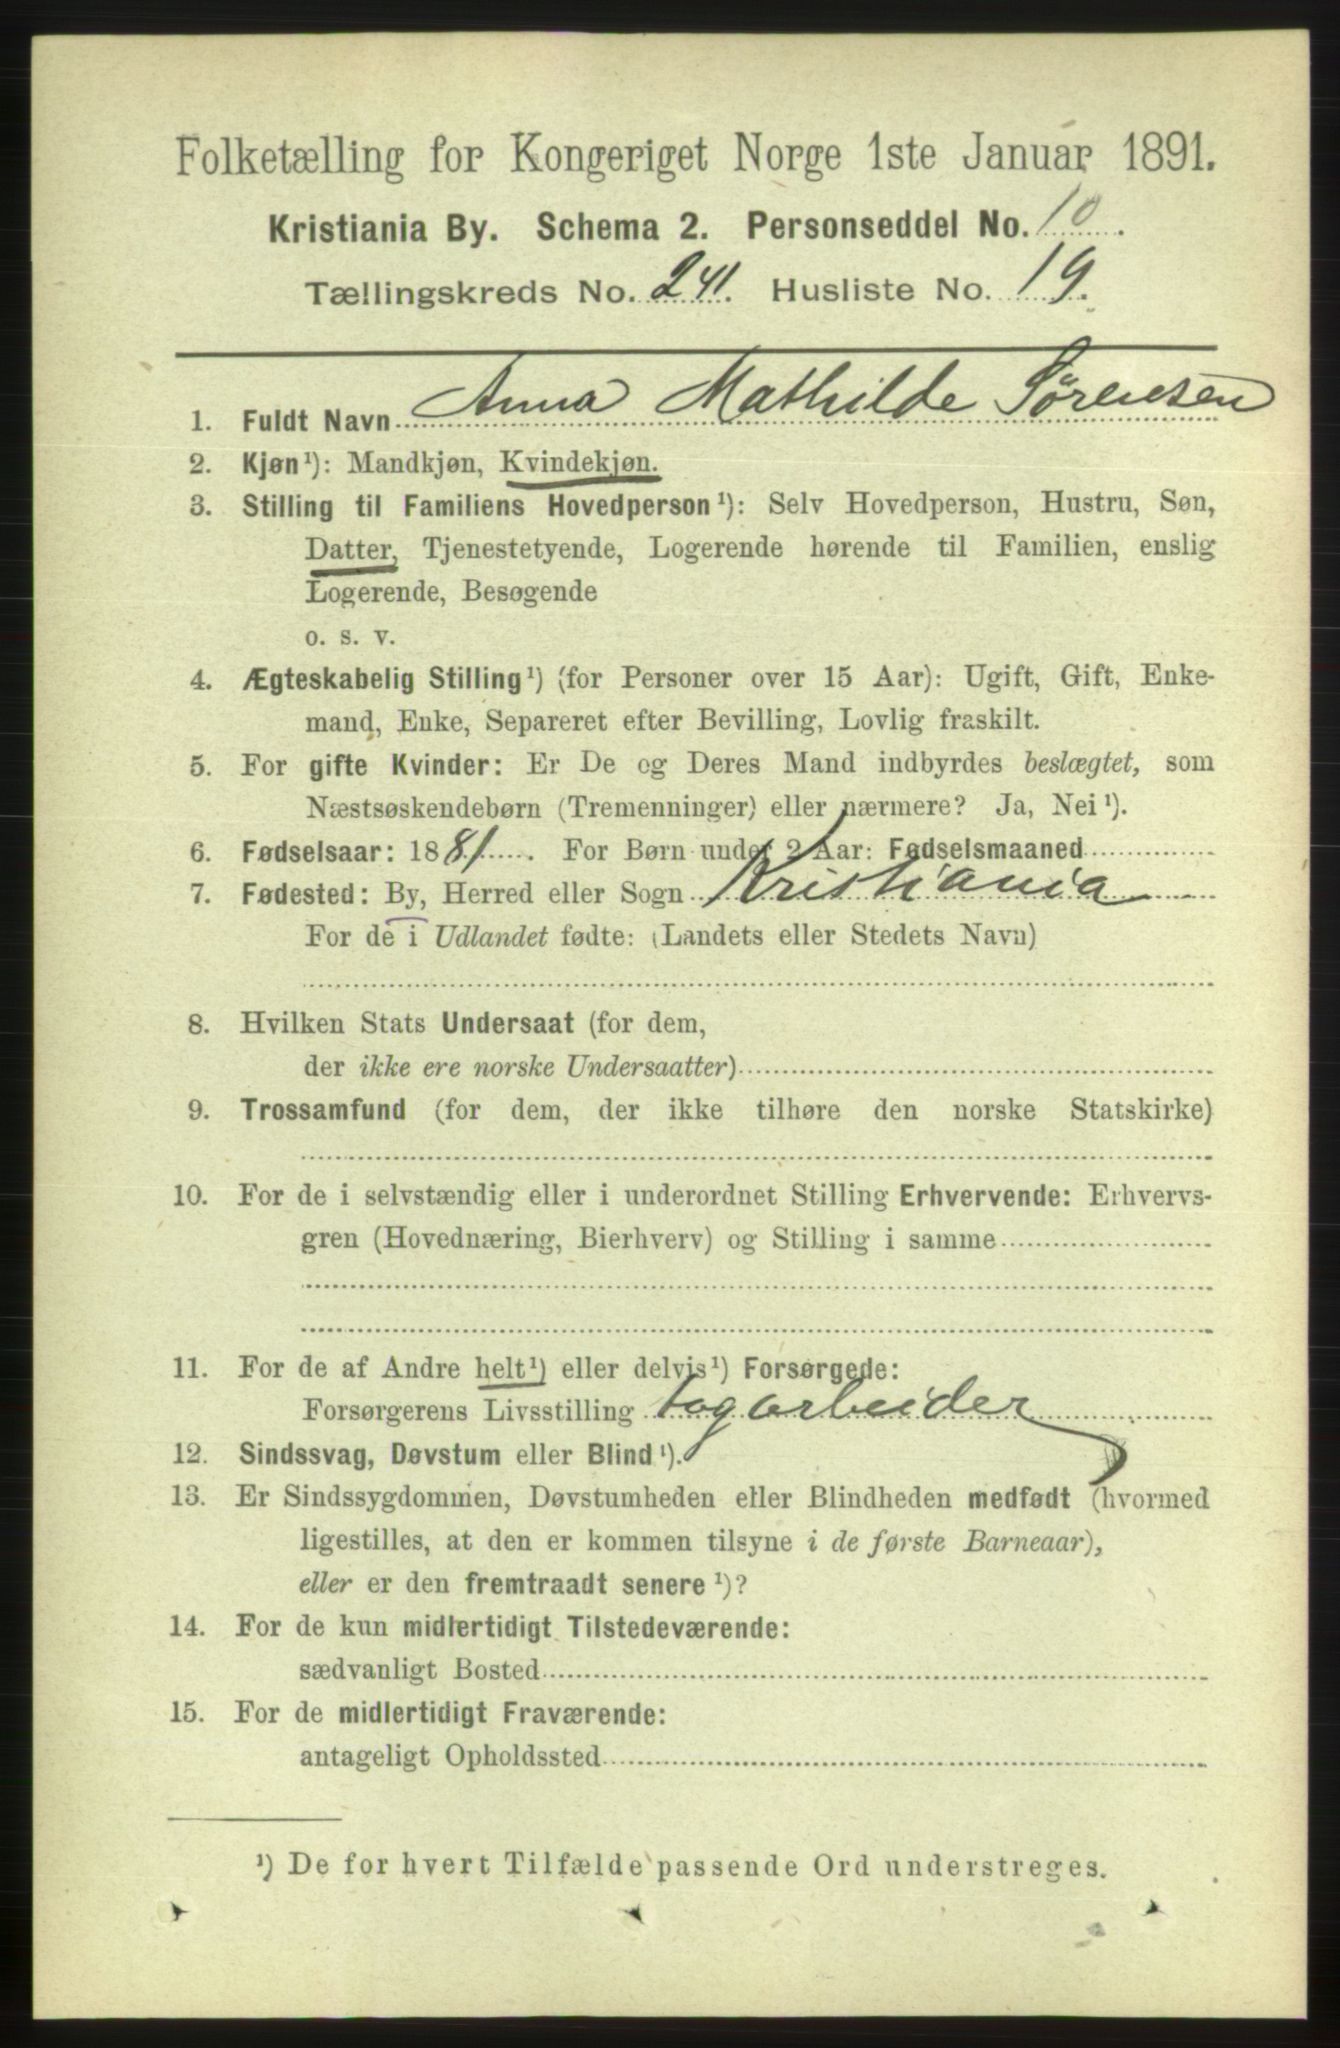 Folketælling for Kongeriget Norge 1ste Januar 1891.
Kristiania By. Schema 2. Personseddel No. 10.
Tællingskreds No. 241. Husliste No. 19.
1. Fuldt Navn Anna Mathilde Sørensen
2. Kjøn¹): Mandkjøn, Kvindekjøn.
3. Stilling til Familiens Hovedperson¹): Selv Hovedperson, Hustru, Søn,
Datter, Tjenestetyende, Logerende hørende til Familien, enslig
Logerende, Besøgende
o. s. v.
4. Ægteskabelig Stilling¹) (for Personer over 15 Aar): Ugift, Gift, Enke-
mand, Enke, Separeret efter Bevilling, Lovlig fraskilt.
5. For gifte Kvinder: Er De og Deres Mand indbyrdes beslægtet, som
Næstsøskendebørn (Tremenninger) eller nærmere? Ja, Nei¹).
6. Fødselsaar: 1881. For Børn under 2 Aar: Fødselsmaaned
7. Fødested: By, Herred eller Sogn Kristiania
For de i Udlandet fødte: (Landets eller Stedets Navn)
8. Hvilken Stats Undersaat (for dem,
der ikke ere norske Undersaatter)
9. Trossamfund (for dem, der ikke tilhøre den norske Statskirke)
10. For de i selvstændig eller i underordnet Stilling Erhvervende: Erhvervs-
gren (Hovednæring, Bierhverv) og Stilling i samme
11. For de af Andre helt¹) eller delvis¹) Forsørgede:
Forsørgerens Livsstilling
12. Sindssvag, Døvstum eller Blind¹).
13. Er Sindssygdommen, Døvstumheden eller Blindheden medfødt (hvormed
ligestilles, at den er kommen tilsyne i de første Barneaar),
eller er den fremtraadt senere¹)?
14. For de kun midlertidigt Tilstedeværende:
sædvanligt Bosted
15. For de midlertidigt Fraværende:
antageligt Opholdssted
¹) De for hvert Tilfælde passende Ord understreges.